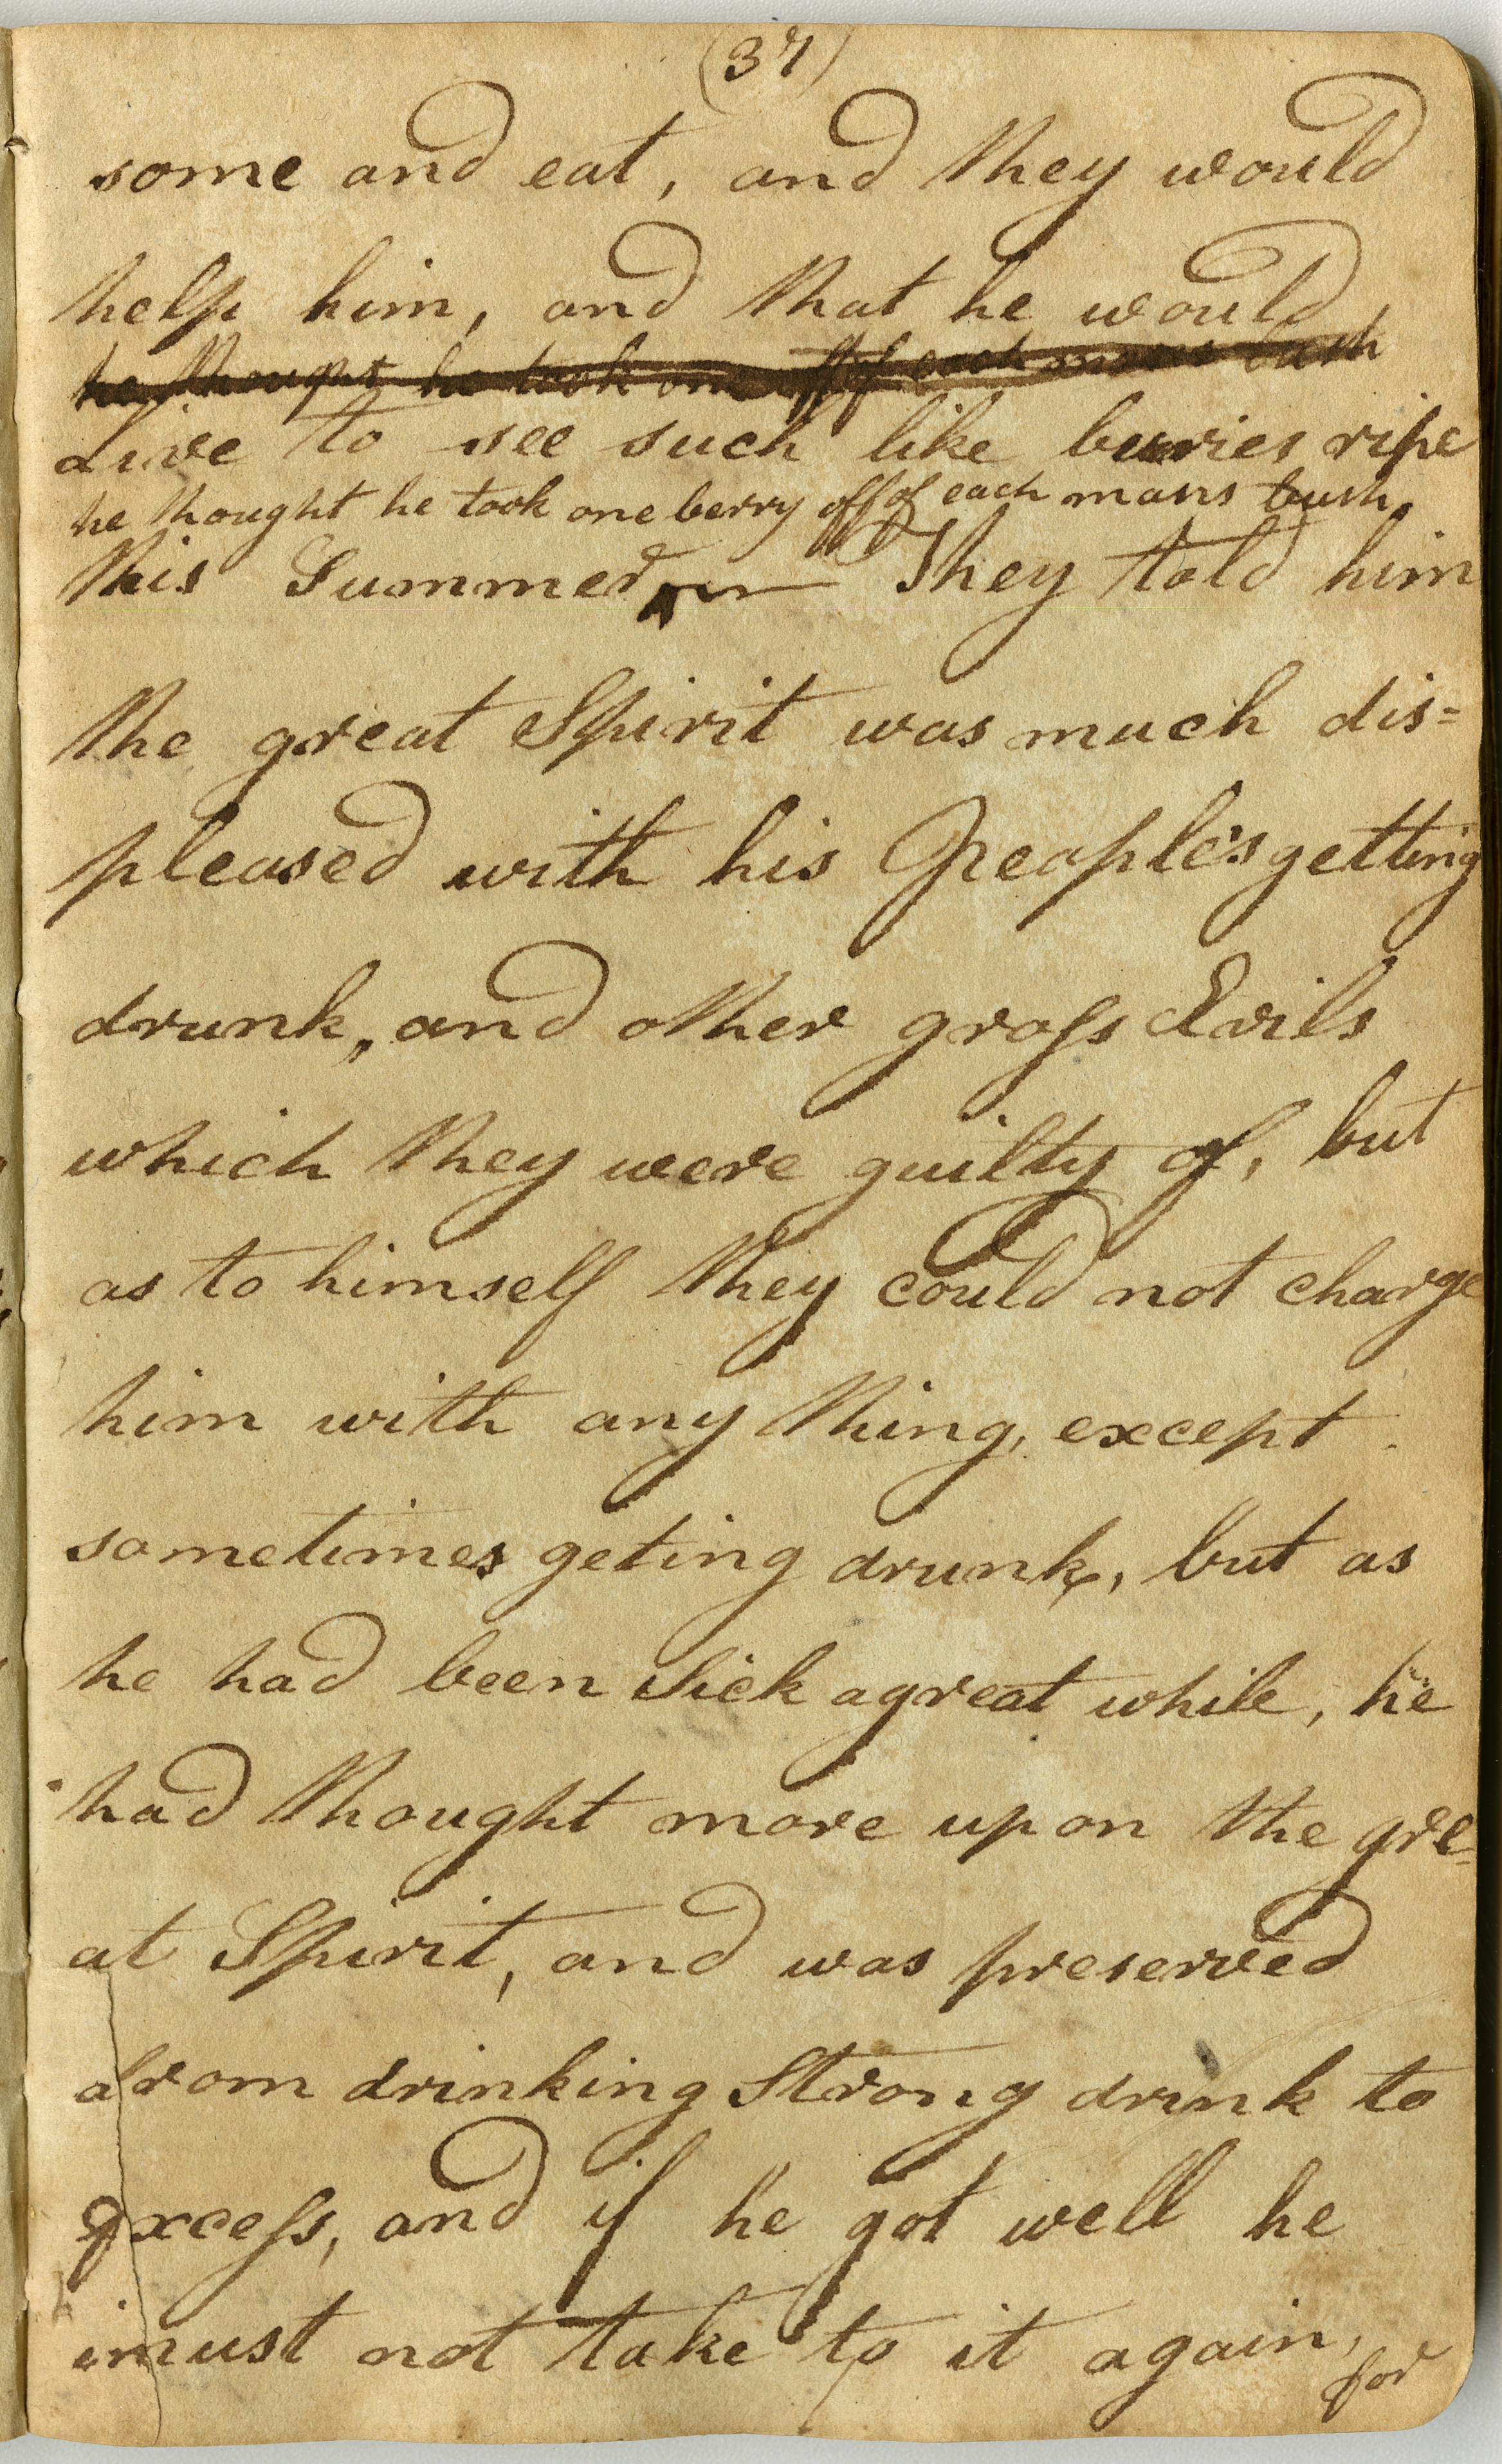 (37)
some and eat, and they would
help him, and that he would
he thought he took one off of each mans bush
Live to see such like berries ripe
he thought he took one berry off of each mans bush.
this Summer They told him
the great Spirit was much dis=
pleased with his People's getting
drunk, and other gross Evils
which they were guilty of, but
as to himself they could not charge
him with any thing, except
sometimes geting drunk, but as
he had been sick a great while, he
had thought more upon the gre=
at Spirit, and was preserved
from drinking Strong drink to
excess, and if he got well he
must not take to it again,
for